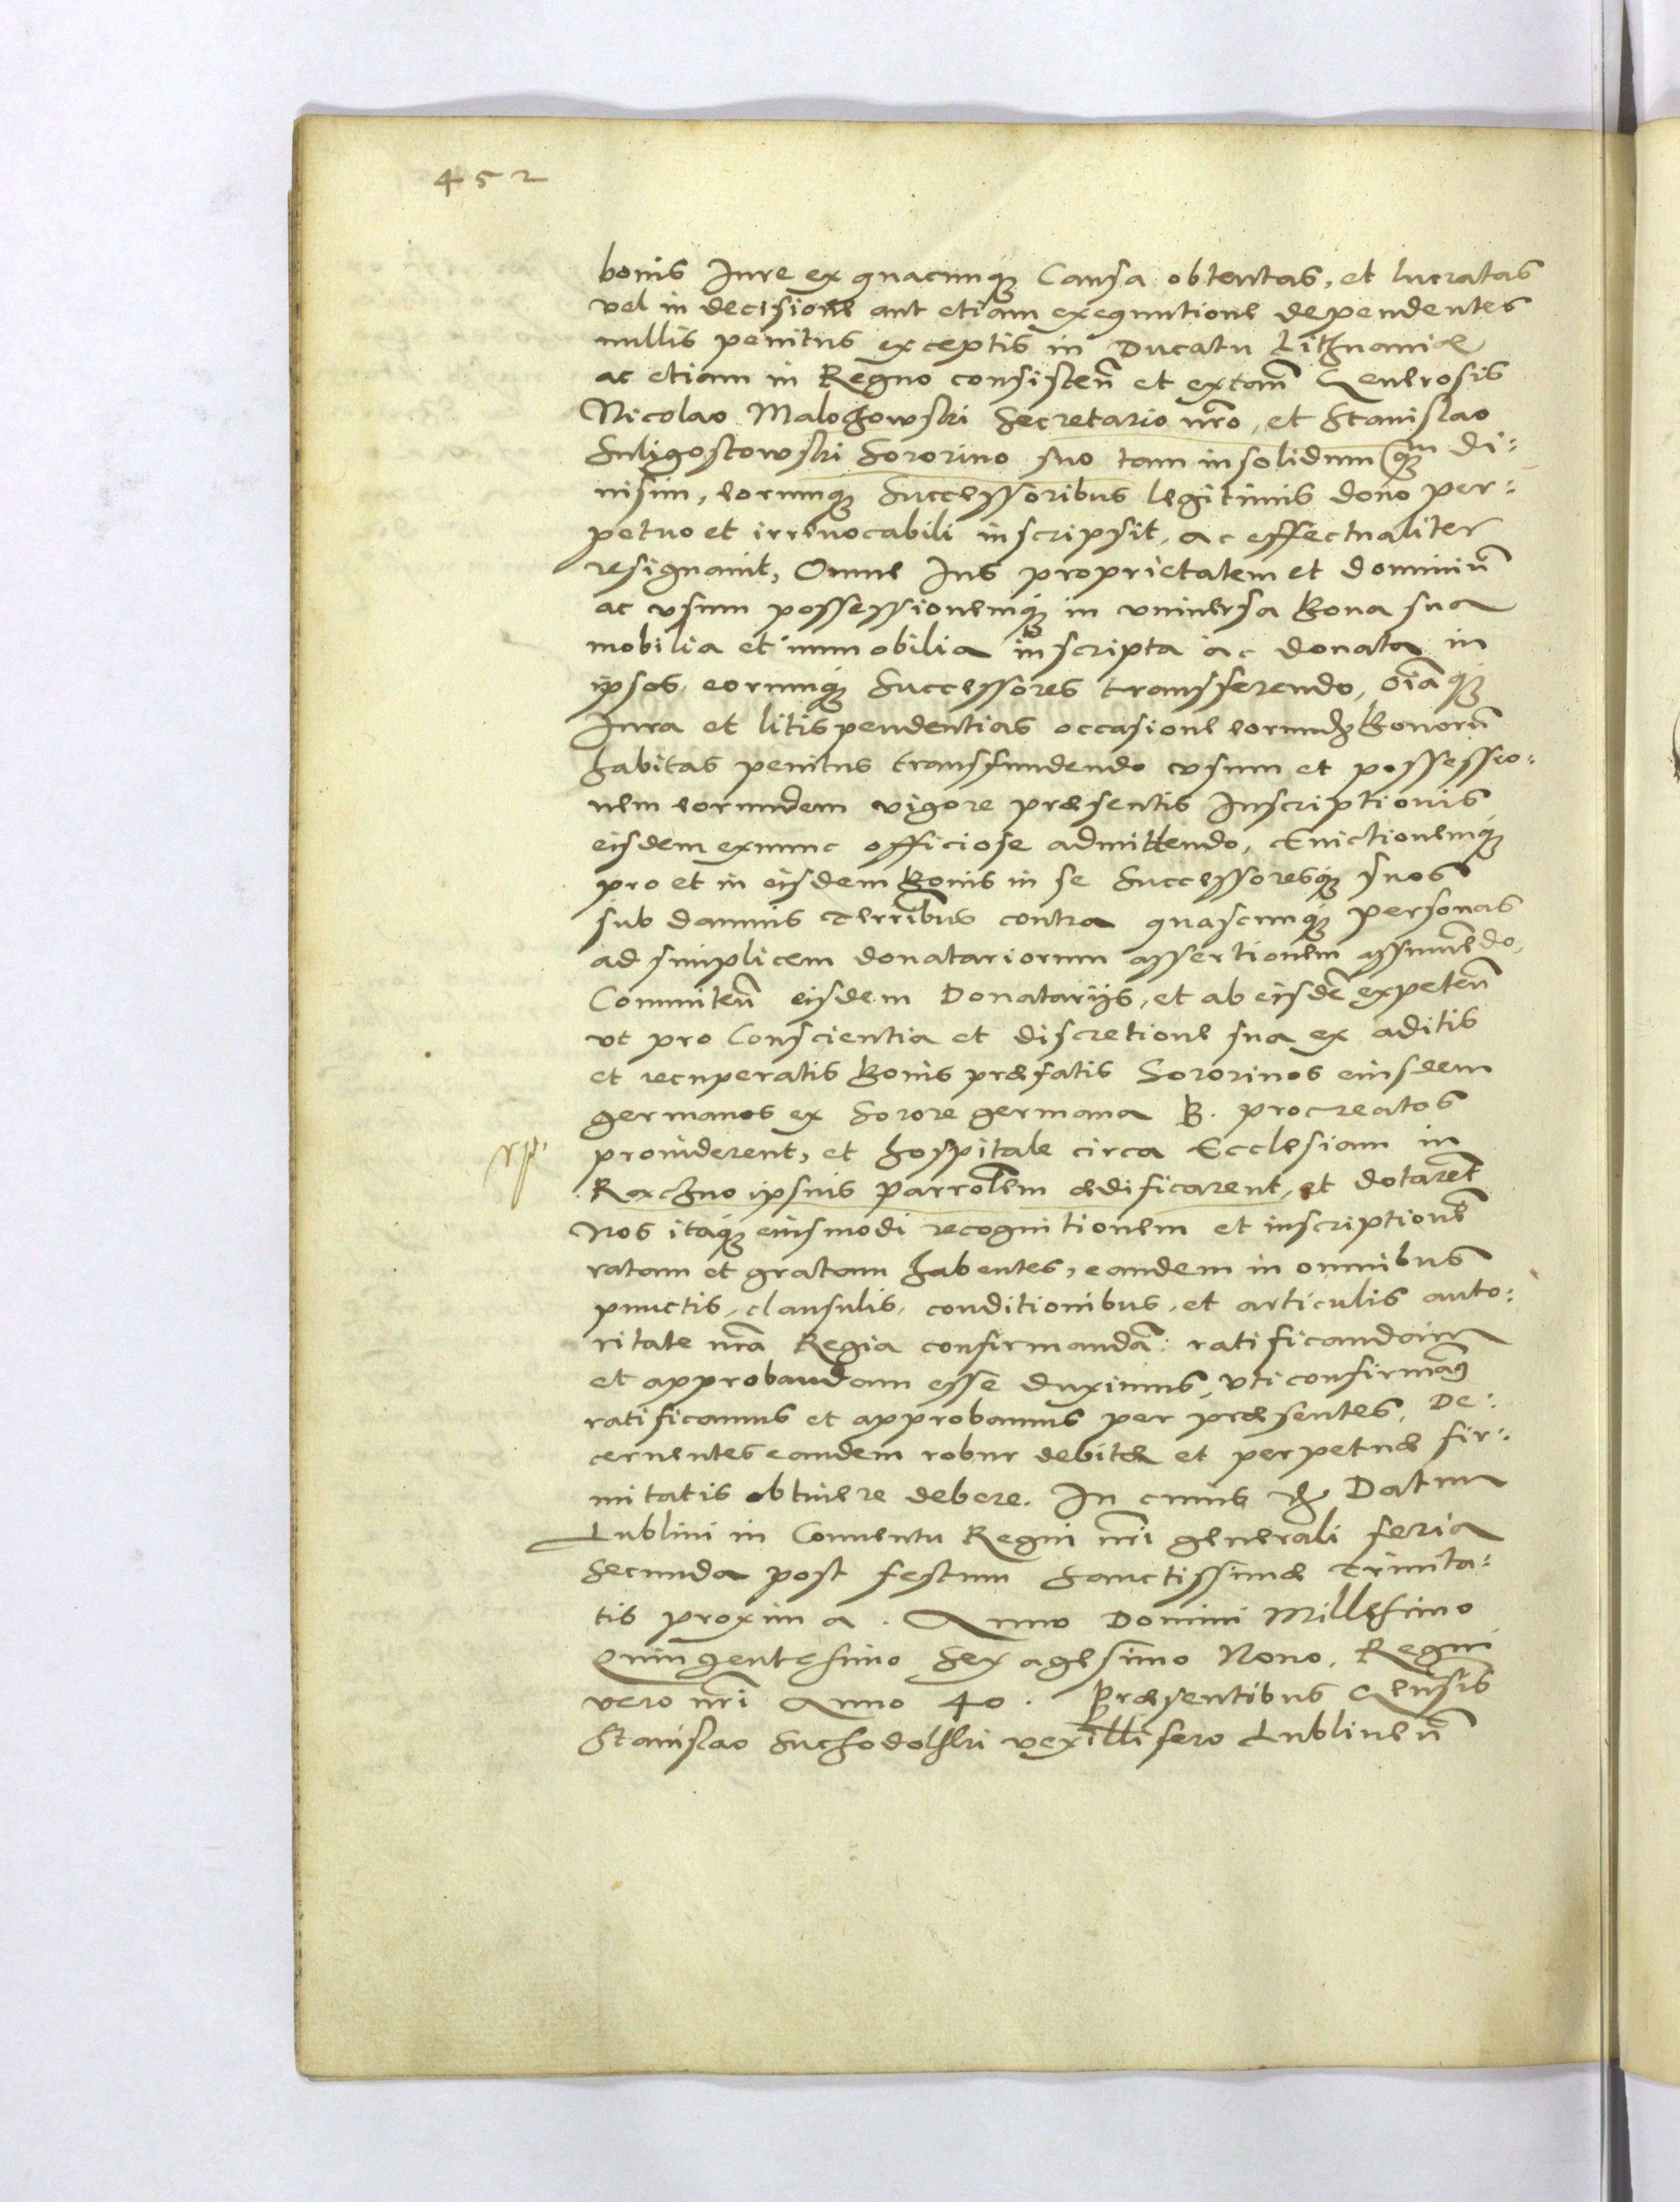 452
bonis Jure ex quacunq Causa obtentas, et lucratas
vel in decisione aut etiam exequutione dependentes
nullis penitus exceptis in Ducatu Lithuaniæ
ac etiam in Regno consisten̄ et extan̄ Generosis
Nicolao Malochowski Secretario nr̄o, et Stanislao
Suligostowski Sororino suo tam insolidum q̄ȝ di:
uisim, eorumq Successoribus legitimis dono per:
petuo et irreuocabili inscripsit, ac effectualiter
resignauit, Omne Jus proprietatem et dominiū
ac vsum possessionemq in vniuersa bona sua
mobilia et immobilia inscripta ac donata in
ipsos, eorumq Successores transferendo, oīaq
Jura et litispendentias occasione eorundȝ bonorū
habitas penitus transfundendo vsum et possessio:
nem eorundem vigore præsentis Inscriptionis
eisdem exnunc officiose admittendo, Euictionemq
pro et in eisdem bonis in se Successoresq suos
sub damnis terribus contra quascunq personas
ad simplicem donatariorum assertionem assumēdo,
Commiten̄ eisdem Donatarijs, et ab eisdē expeten̄
vt pro Conscientia et discretione sua ex aditis
et recuperatis bonis præfatis Sororinos eiusdem
germanos ex Sorore germana B. procreatos
prouiderent, et hospitale circa Ecclesiam in
Rachno ipsius parrolem ædificarent, et dotarēt
Nos itaq eiusmodi recognitionem et inscriptionē
ratam et gratam habentes, eandem in omnibus
punctis, clausulis, conditionibus, et articulis auto:
ritate nr̄a Regia confirmandā: ratificandam
et approbandam esse duximus, vti confirmāȝ
ratificamus et approbamus per præsentes. De:
cernentes eandem robur debitæ et perpetuæ fir:
mitatis obtinere debere. In cuius rȝ Datum
Lublini in Conuentu Regni nr̄i generali feria
Secunda post festum Sanctissimæ Trinita:
tis proxima. Anno Domini Millesimo
Quingentesimo Sexagesimo Nono. Regni
vero nr̄i Anno 40. Præsentibus Gensis
Stanislao Suchodolski vexillifero Lublinen̄